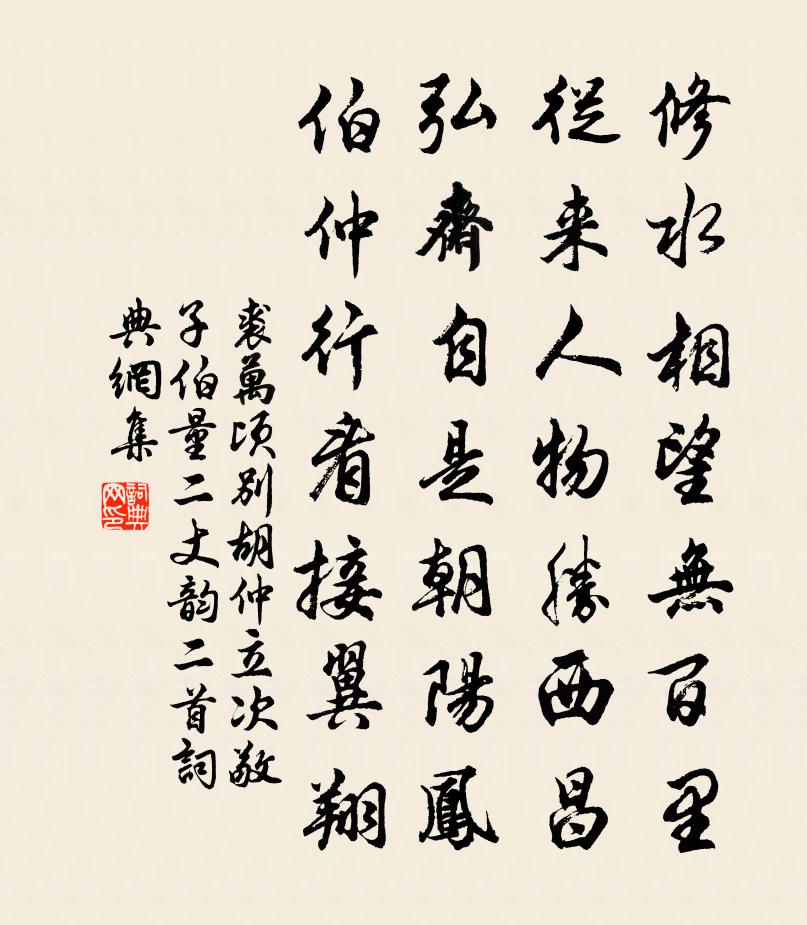 修水相望無百里
從来人物勝西昌
弘齋自是朝陽鳳
伯仲行看接翼翔
裘萬頃別胡仲立次敬
子伯量二丈韵二首詞
典網集
詞典
网印